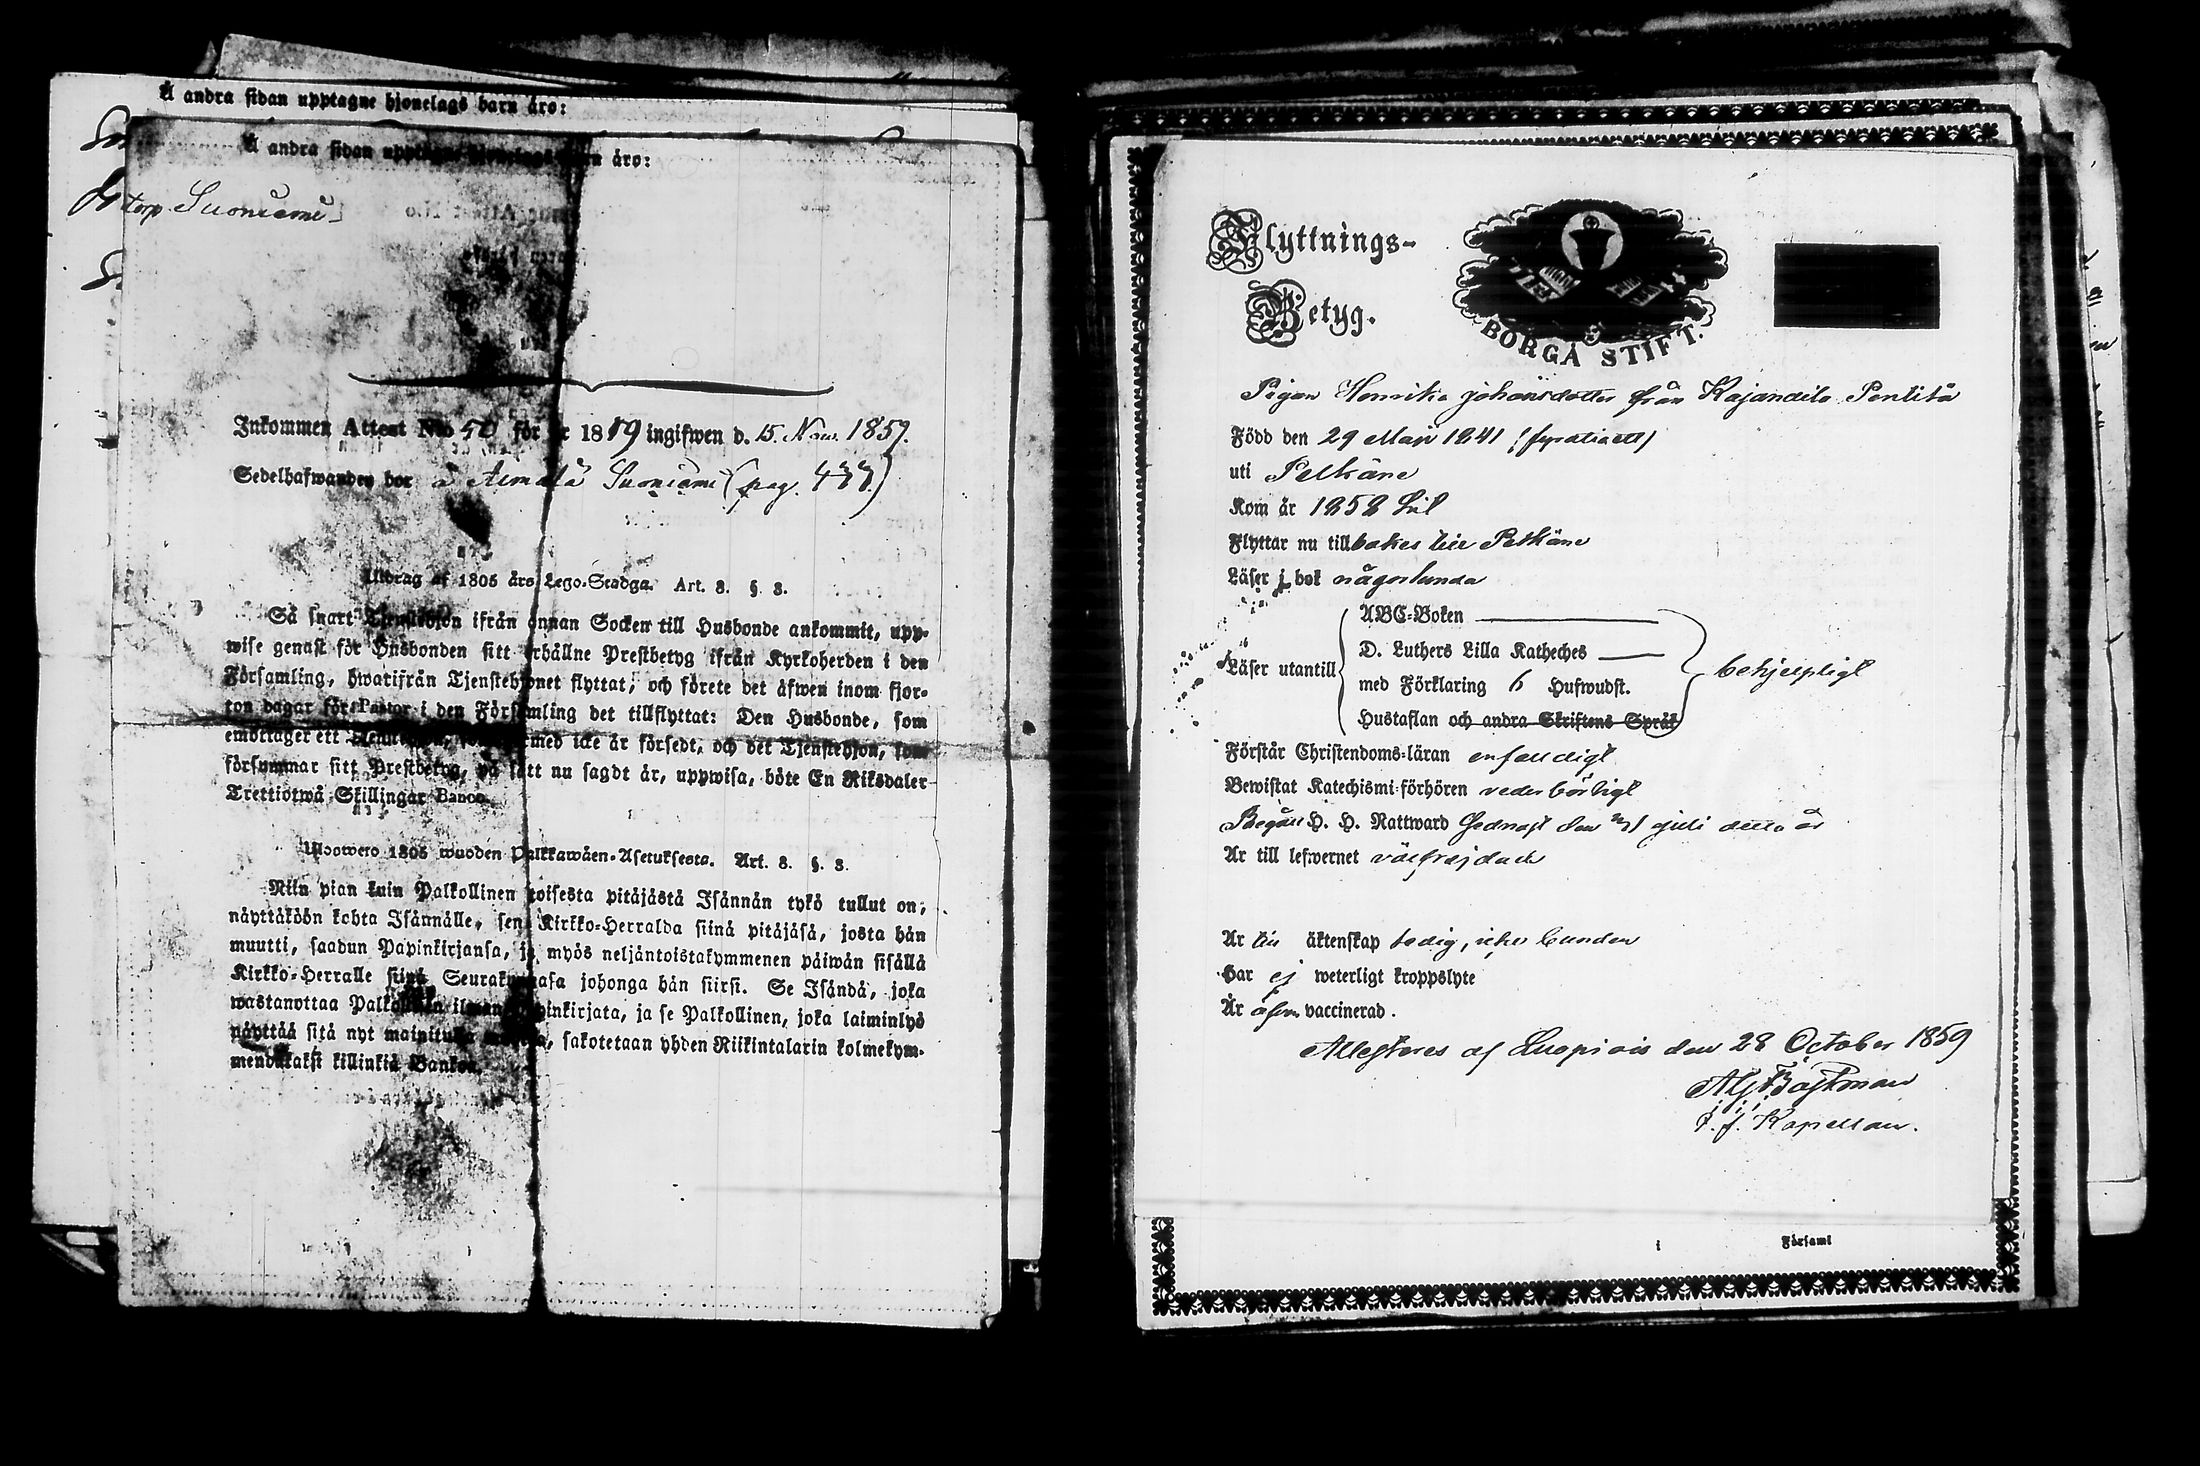 Å andra sidan upptagne hjonelags barn äro:
Å andra sidan äro:
torp Suoniemi
Inkommen Attest No 50 för år 1859 ingifwen d. 15. Nov. 1859.
Sedelhafwanden bor å Aimälä Suoniemi (pag. 477.)
Utdrag af 1805 års Lego-Stadga. Art. 8. §. 3.
Så snart Tjenstehjon ifrån annan Socken till Husbonde ankommit, upp-
wise genast för Husbonden sitt erhållne Prestbetyg ifrån Kyrkoherden i den
Församling, hwarifrån Tjenstehjonet flyttat, och förete det äfwen inom fjor-
ton dagar för Pastor i den Församling det tillflyttat: Den Husbonde, som
emottager ett med icke är försedt, och det Tjenstehjon, som
försummar sitt Prestbetyg, på sätt nu sagdt är, uppwisa, böte En Riksdaler
Trettiotwå Skillingar Banco.
Ulosweto 1805 wuoden Palkkawäen-Asetuksesta. Art. 8. §. 3.
Niin pian kuin Palkollinen toisesta pitäjästä Isännän tykö tullut on,
näyttäköön kohta Isännälle, sen Kirkko-Herralda siinä pitäjäsä, josta hän
muutti, saadun Papinkirjansa, ja myös neljäntoistakymmenen päiwän sisällä
Kirkko-Herralle siinä Seurakunnasa johonga hän siirsi. Se Isändä, joka
wastanottaa Palkollisen ilman Papinkirjata, ja se Palkollinen, joka laiminlyö
näyttää sitä nyt mainitulla , sakotetaan yhden Riikintalarin kolmekym-
mendäkaksi killinkiä Bankoa.
Flyttnings-
Betyg.
BORGÅ STIFT.
Pigan Henrika Johansdotter från Kajandila Penttilä
Född den 29 Maji 1841 (fyratiett)
uti Pelkäne
Kom år 1858 hit
Flyttar nu tillbakes till Pelkäne
Läser i bok någorlunda
Läser utantill
ABC-Boken
D. Luthers Lilla Katheches
med Förklaring 6 Hufwudst.
Hustaflan och andra Skriftens Språk
behjelpligt
Förstår Christendoms-läran enfaldigt
Bewistat Katechismi-förhören vederbörligt
Begått H. H. Nattward sednast den 31 Juli detta år
Är till lefwernet välfrejdad
Är till äktenskap ledig, icke bunden
Har ej weterligt kroppslyte
Är äfven vaccinerad.
Attesteras af Luopiois den 28 October 1859
Bergman
t. f. Kapellan.
i Församl